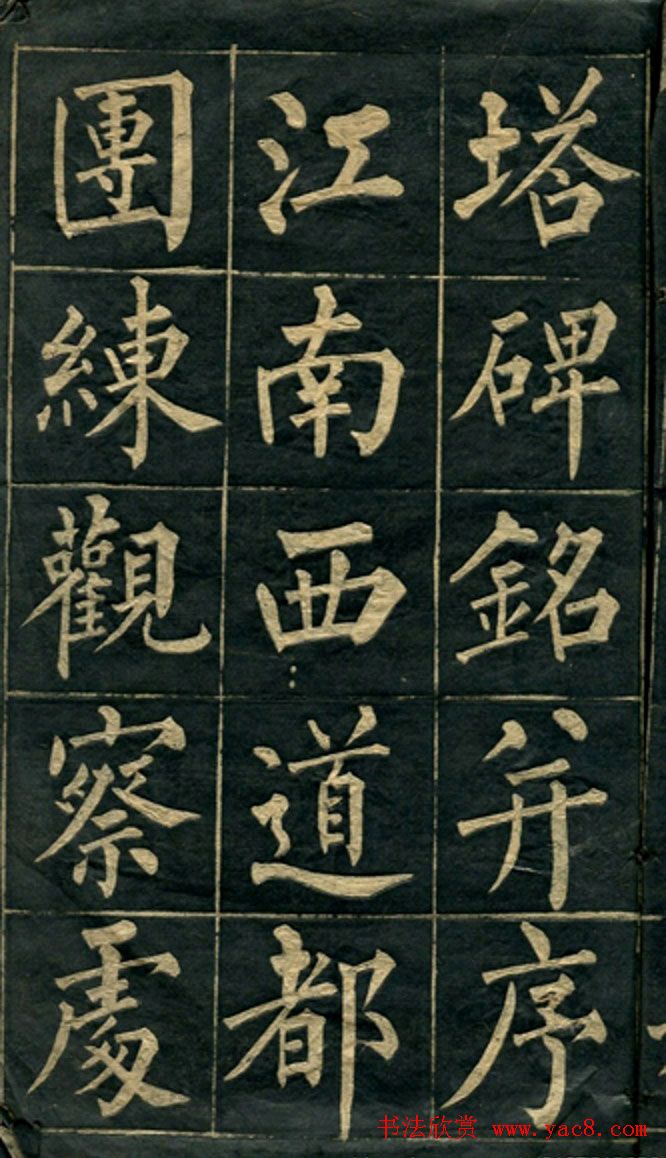 塔碑銘并序
江南西道都
團練觀察處
书法欣赏 www.yac8.com